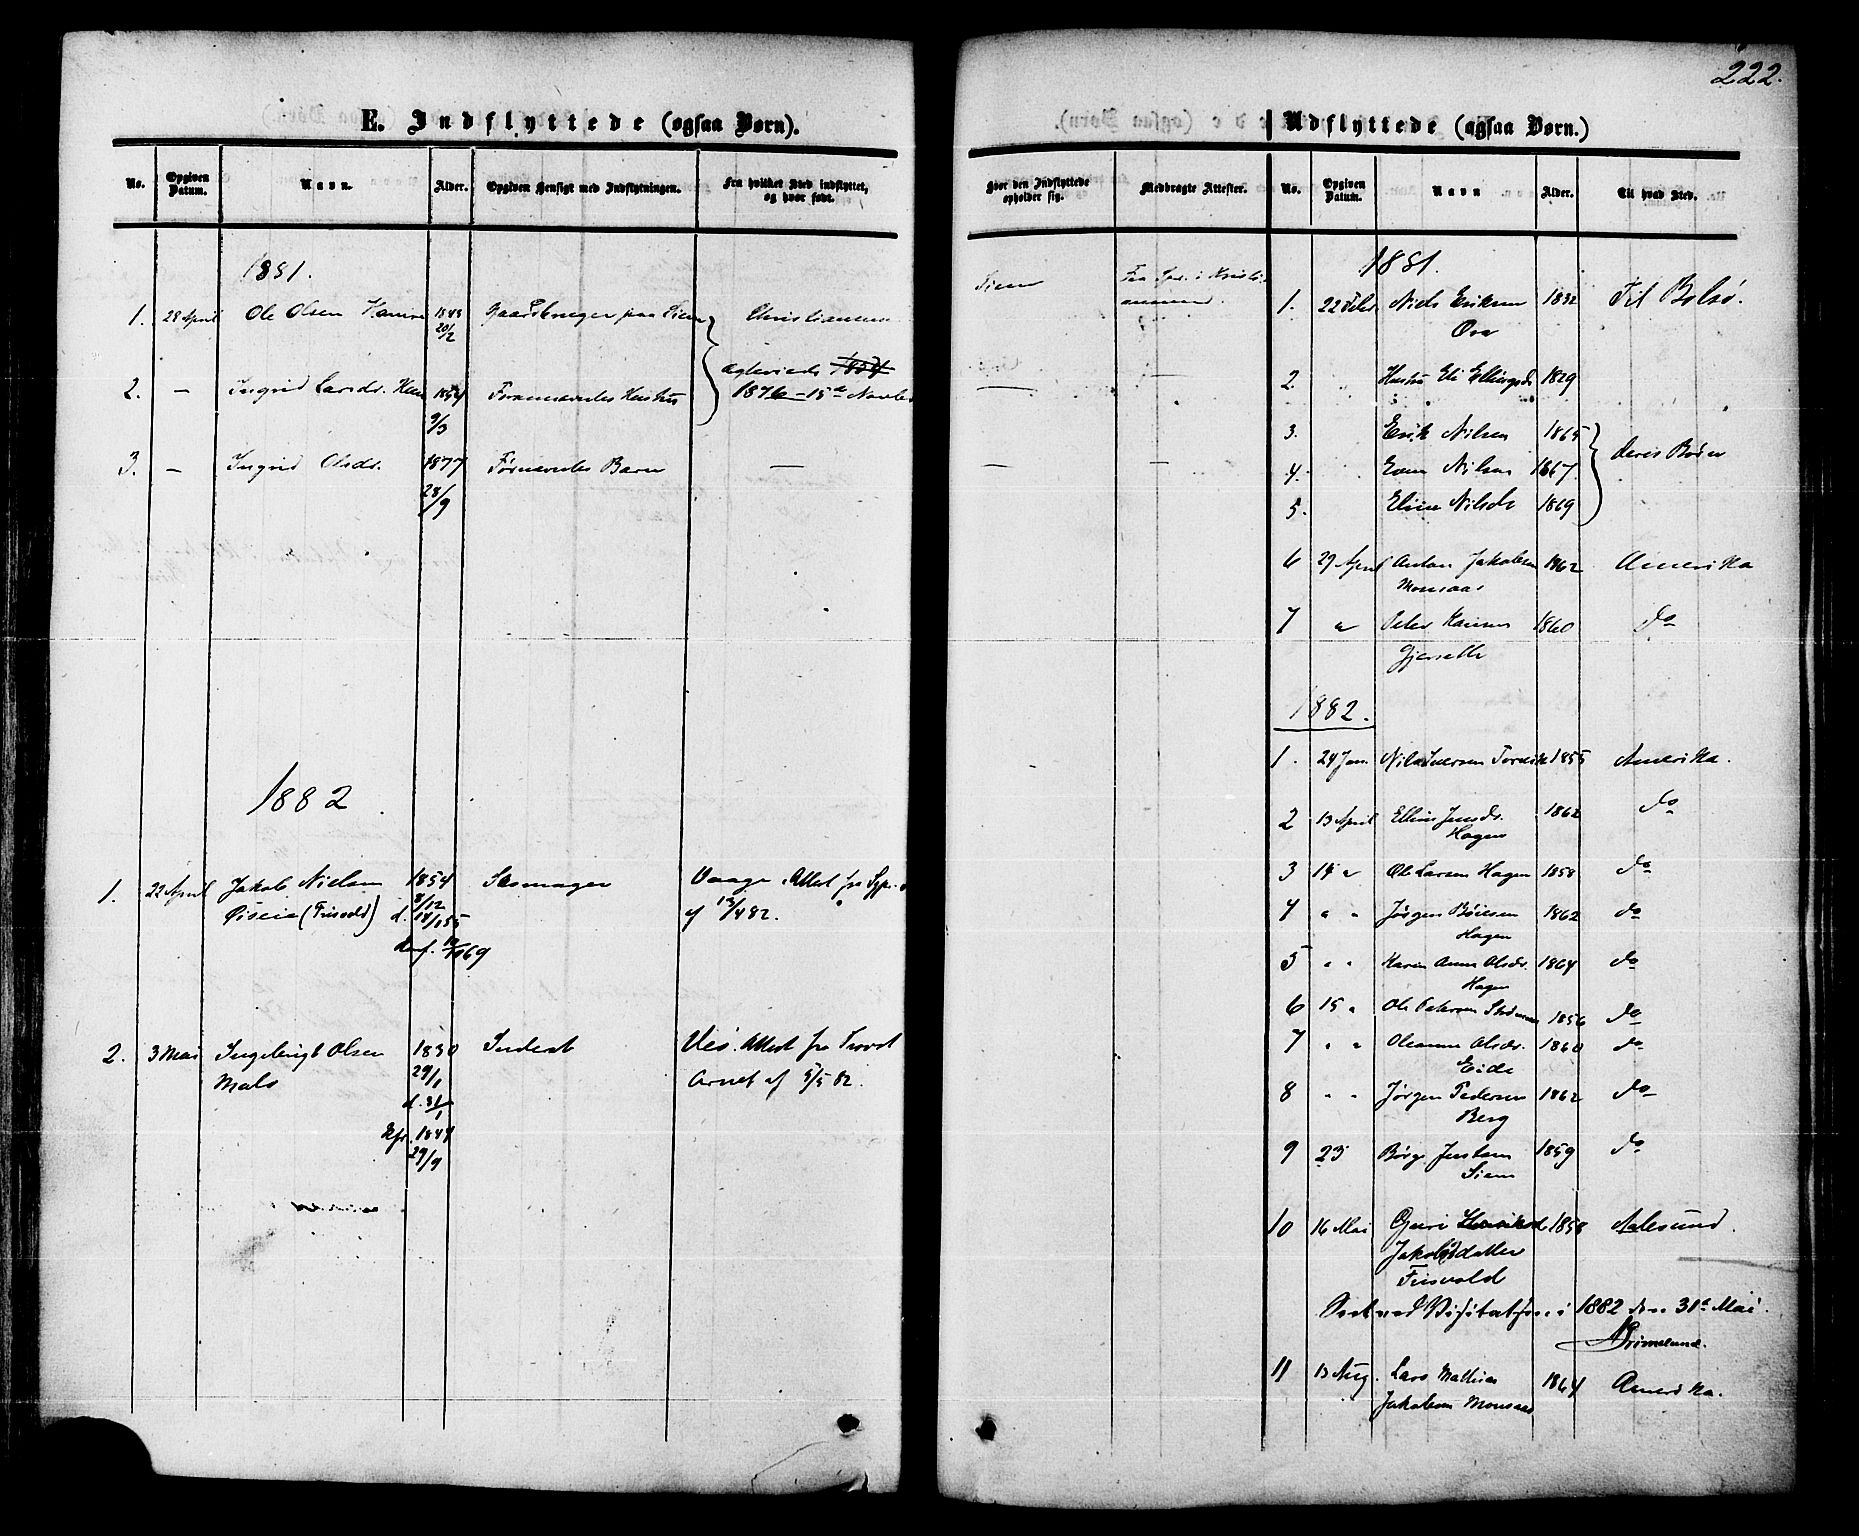 222.
E. Indflyttede (ogsaa Børn).
No. Opgiven Datum. Navn. Alder. Opgiven Hensigt med Indflytningen. Fra hvilket Sted indflyttet, og hvor født.
1881.
1. 28 April Ole Olsen 1843 20/2 Gaardbruger paa Siem Christiansund
2. — Ingrid Larsdr. 1854 9/3 Forannævntes Hustru 1876 – 15de Novbr
3. — Ingrid Olsdr. 1877 28/9 Førnævntes Barn —
1882
1. 22 April Jakob Nielsen 1854 8/12 Vaage. Attest fra
(Frisvold) d. 14/1 55 af 13/4 82.
2. 3 Mai Ingebrigt Olsen 1830 29/1 Inderst Veø. Attest fra Provst
d. 31/1 Arnet af 5/5 82.
29/9
Hvor den Indflyttede opholder sig. Medbragte Attester.
Siem Fra i Kristi-
ansund.
— —
— —
Udflyttede (ogsaa Børn.)
No. Opgiven Datum. Navn Alder. Til hvad Sted.
1881.
1. 22 Febr Niels Eriksen 1832 Til Bolsø.
2. Hustru Eli Ellingsdr 1829
3. Erik Nilsen 1865
4. Nilsen 1867. deres Børn
5. Eline Nilsdr 1869
6 29 April Anton Jakobsen 1862 Amerika
Monsaas
7 " Peder Hansen 1860 do
Gjerseth
1882.
1. 24 Jan. Nils Iversen Torvik 1855 Amerika.
2 13 April Jensdr. 1862 do
Hagen
3 14 " Ole Larsen Hagen 1858 do
4 " " Jørgen 1862 do
Hagen
5 " " Karen Anna Olsdr. 1864 do
Hagen
6 15 " Ole Petersen 1856 do
7 " " Oleanna Olsdr. 1860 do
Eide
8 " " Jørgen Pedersen 1862 do
Berg
9 23 Børge Jensen 1859 do
Siem
10 16 Mai Guri 1858 Aalesund.
Jakobsdatter
Frisvold
Seet ved Visitatsen i 1882 den 31te Mai.
Grimelund.
11 13 Aug. Lars Mathias 1864 Amerika.
Jakobsen Monsaas